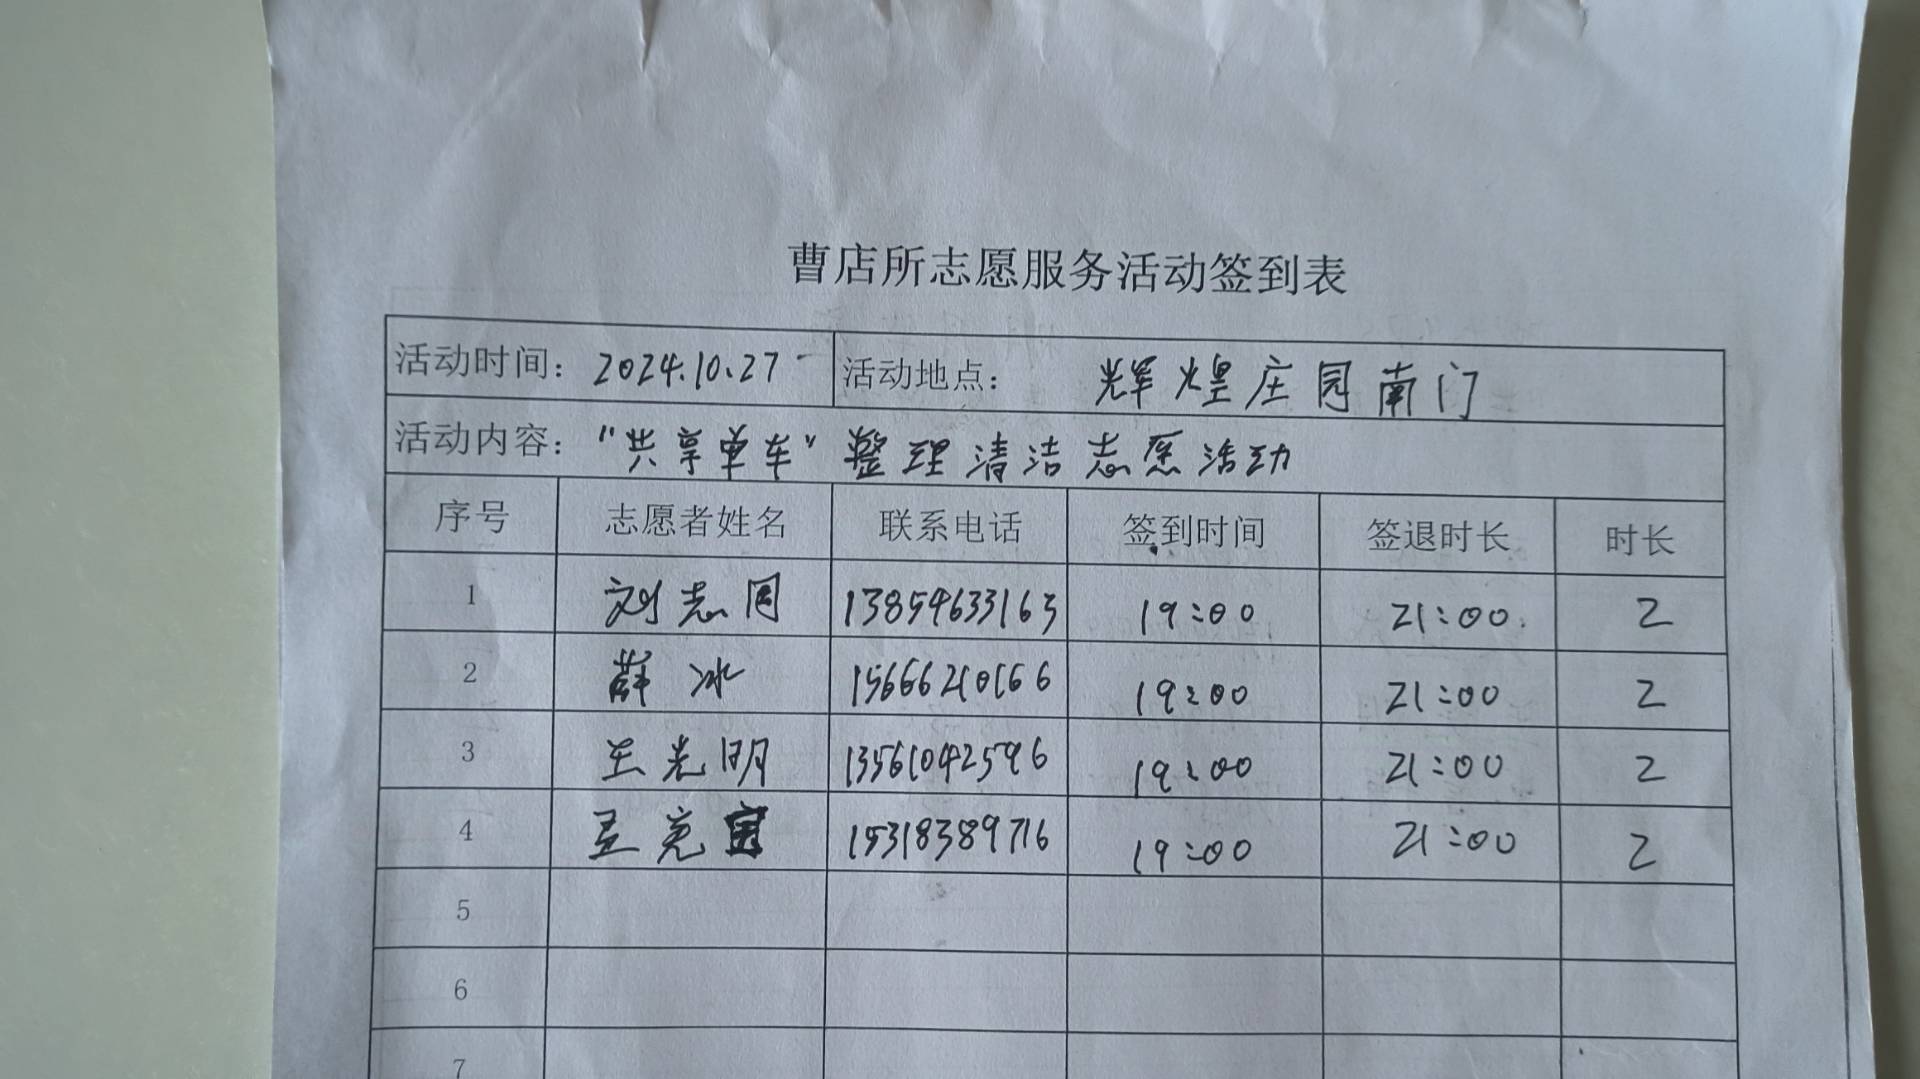 曹店所志愿服务活动签到表
活动时间：2024.10.27 活动地点： 辉煌庄园南门
活动内容：“共享单车”整理清洁志愿活动
序号 志愿者姓名 联系电话 签到时间 签退时长 时长
1 刘志国 13854633163 19:00 21:00 2
2 薛冰 15666210166 19:00 21:00 2
3 王光明 13561042596 19:00 21:00 2
4 15318389716 19:00 21:00 2
5
6
7